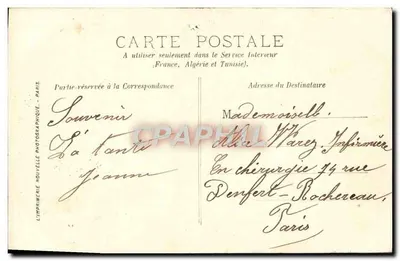 CARTE POSTALE
A utiliser seulement dans le Service Intérieur
(France, Algérie et Tunisie).
Partie réservée à la Correspondance
Adresse du Destinataire
Souvenir
Ta tante
Jeanne
Mademoiselle
Alice Warez Infirmière
En chirurgie 74 rue
Denfert-Rochereau
Paris
L'IMPRIMERIE NOUVELLE PHOTOGRAPHIQUE. - PARIS
delcampe